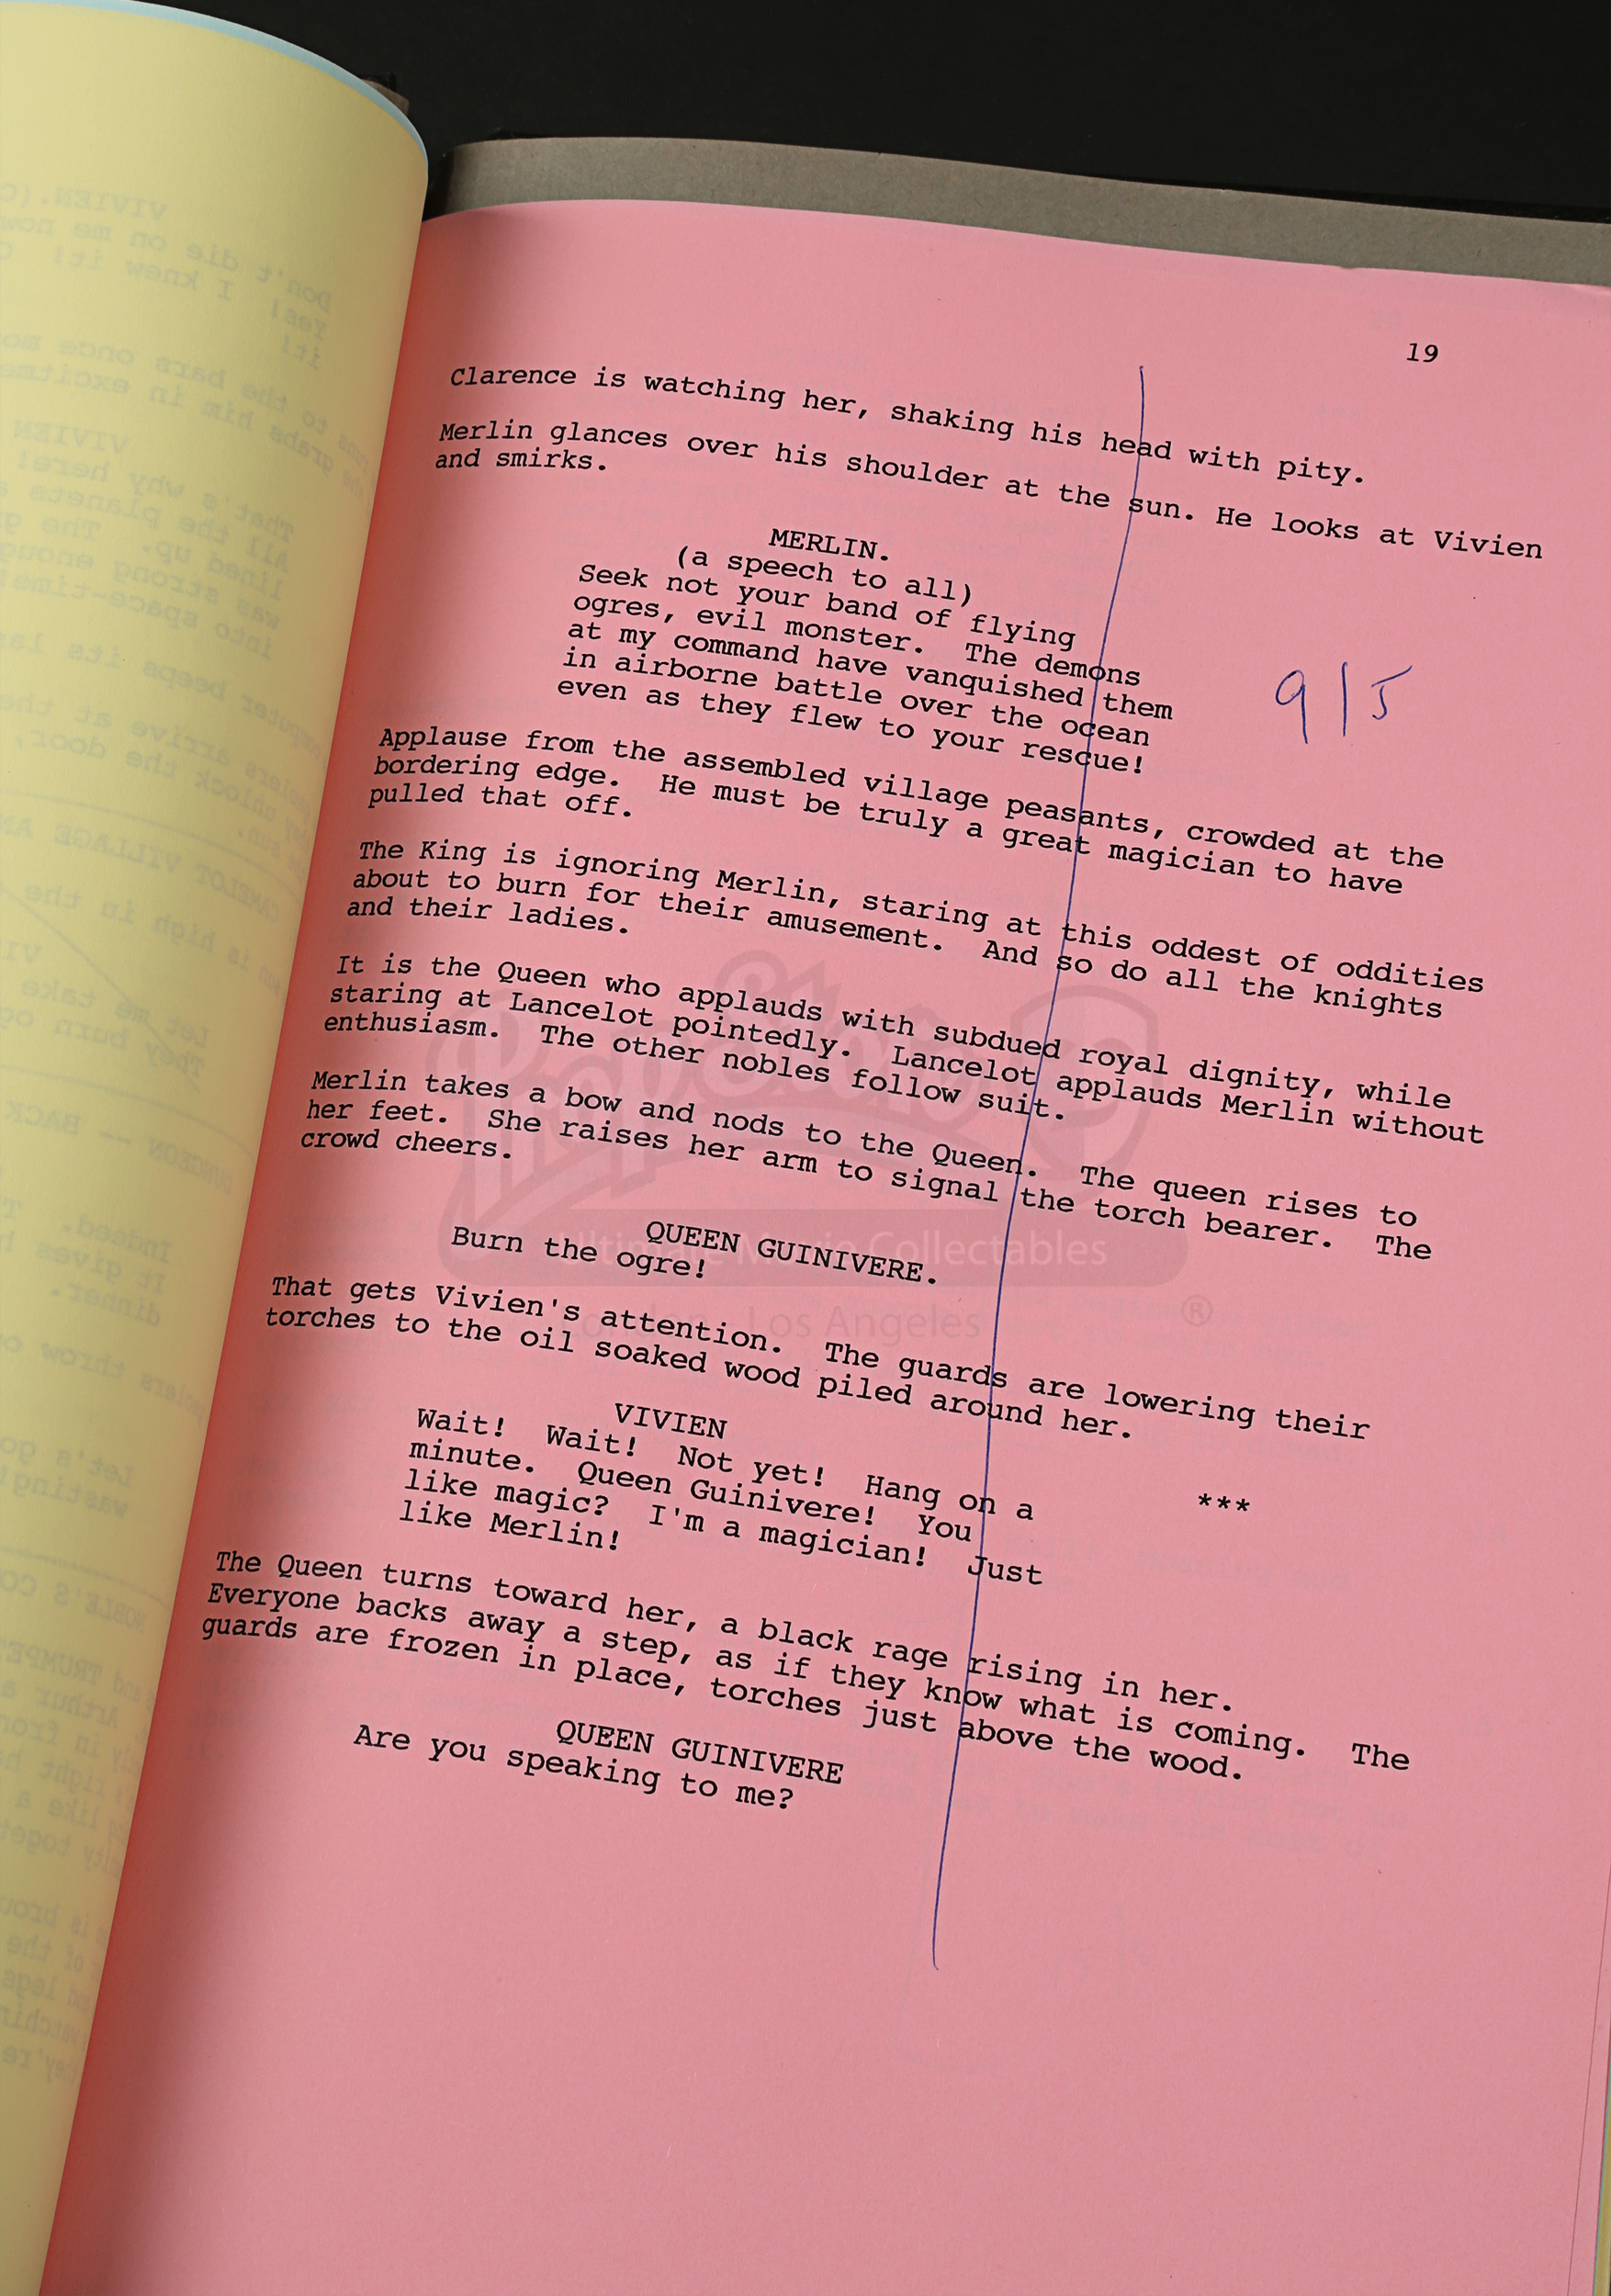 19
Clarence is watching her, shaking his head with pity.
Merlin glances over his shoulder at the sun. He looks at Vivien
and smirks.
MERLIN.
(a speech to all)
Seek not your band of flying
ogres, evil monster. The demons
at my command have vanquished them
in airborne battle over the ocean
even as they flew to your rescue!
915
Applause from the assembled village peasants, crowded at the
bordering edge. He must be truly a great magician to have
pulled that off.
The King is ignoring Merlin, staring at this oddest of oddities
about to burn for their amusement. And so do all the knights
and their ladies.
It is the Queen who applauds with subdued royal dignity, while
staring at Lancelot pointedly. Lancelot applauds Merlin without
enthusiasm. The other nobles follow suit.
Merlin takes a bow and nods to the Queen. The queen rises to
her feet. She raises her arm to signal the torch bearer. The
crowd cheers.
QUEEN GUINIVERE.
Burn the ogre!
That gets Vivien's attention. The guards are lowering their
torches to the oil soaked wood piled around her.
VIVIEN
Wait! Wait! Not yet! Hang on a
minute. Queen Guinivere! You
like magic? I'm a magician! Just
like Merlin!
***
The Queen turns toward her, a black rage rising in her.
Everyone backs away a step, as if they know what is coming. The
guards are frozen in place, torches just above the wood.
QUEEN GUINIVERE
Are you speaking to me?
PropStore
Ultimate Movie Collectables
London - Los Angeles ®